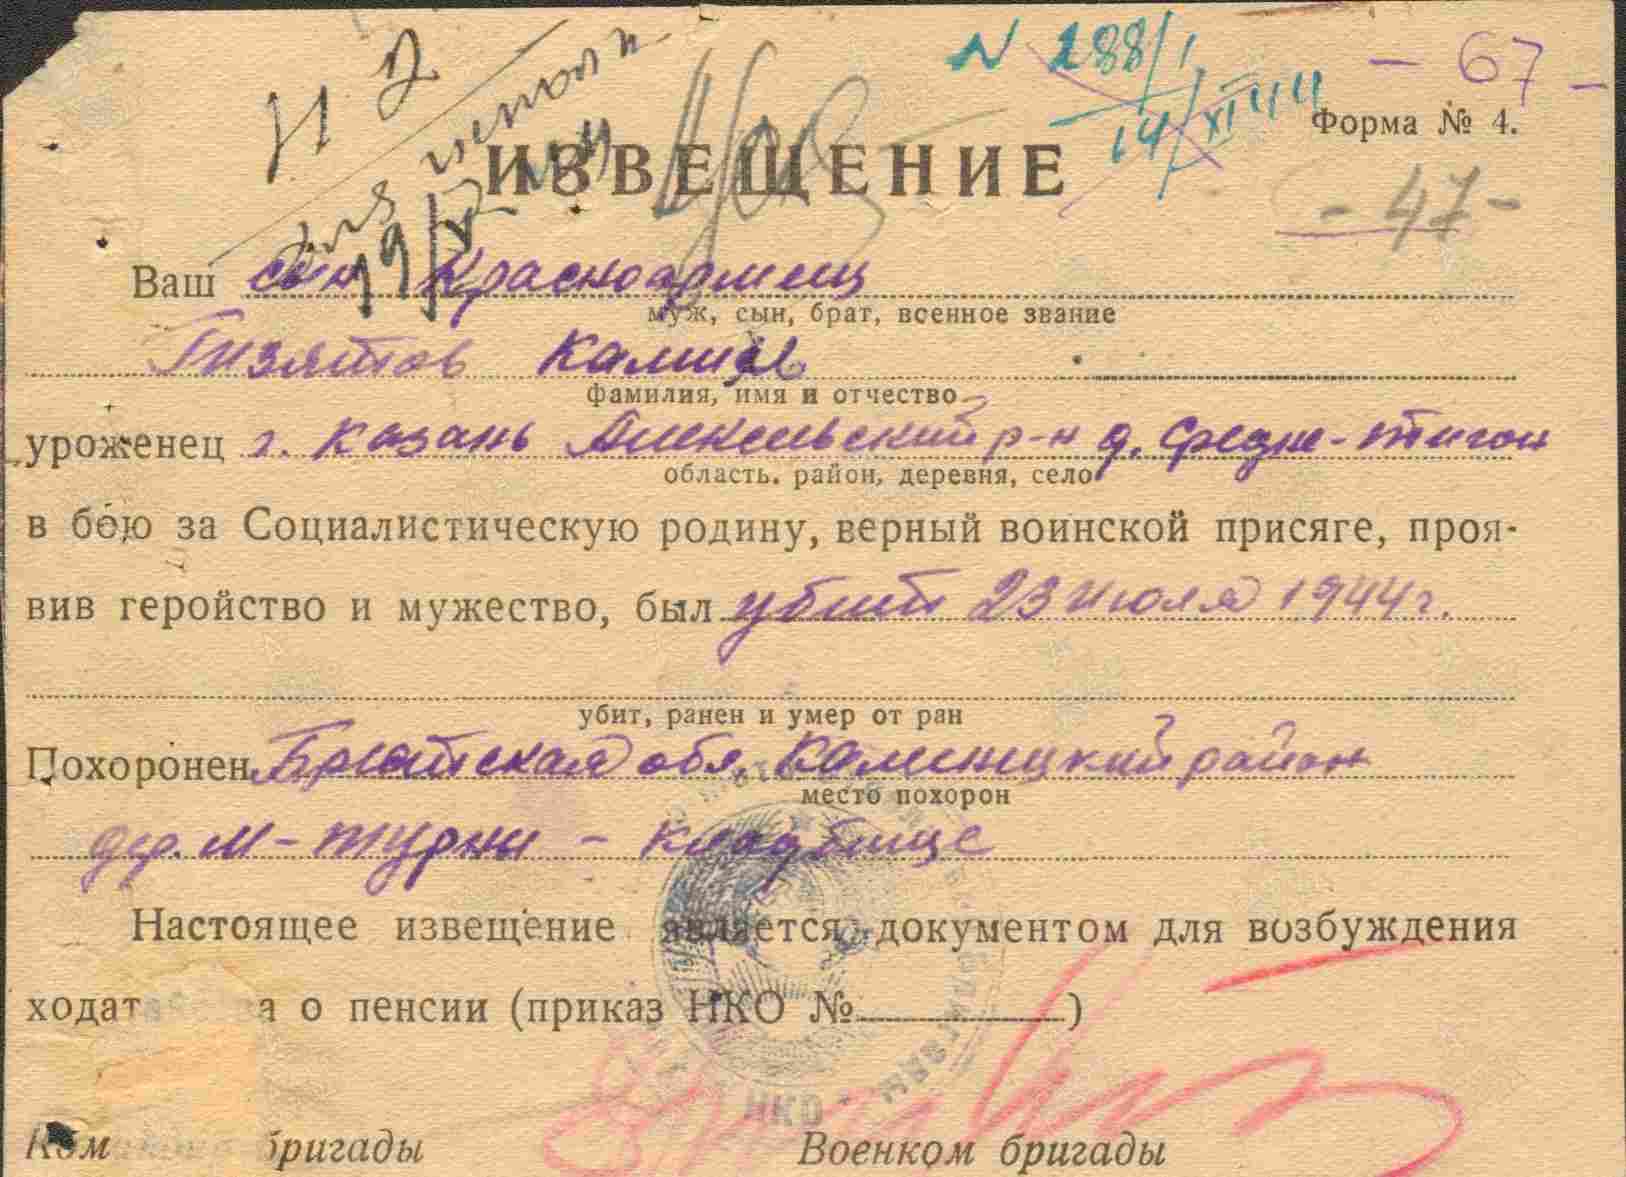 Н 2
для исполн.
N 288/1
14/XI 44
- 67 -
Форма № 4.
ИЗВЕЩЕНИЕ
- 47 -
19/X
Ваш сын Красноармеец
муж, сын, брат, военное звание
Гизятов Камил
фамилия, имя и отчество
уроженец г. Казань Алексеевский р-н д. Средне-тиган
область. район, деревня, село
в бою за Социалистическую родину, верный воинской присяге, проя-
вив геройство и мужество, был убит 23 июля 1944 г.
убит, ранен и умер от ран
Похоронен Брестская обл. Каменецкий район
место похорон
дер. М-турны - кладбище
Настоящее извещение является документом для возбуждения
ходат ва о пенсии (приказ НКО № )
Ком бригады Военком бригады
НКО